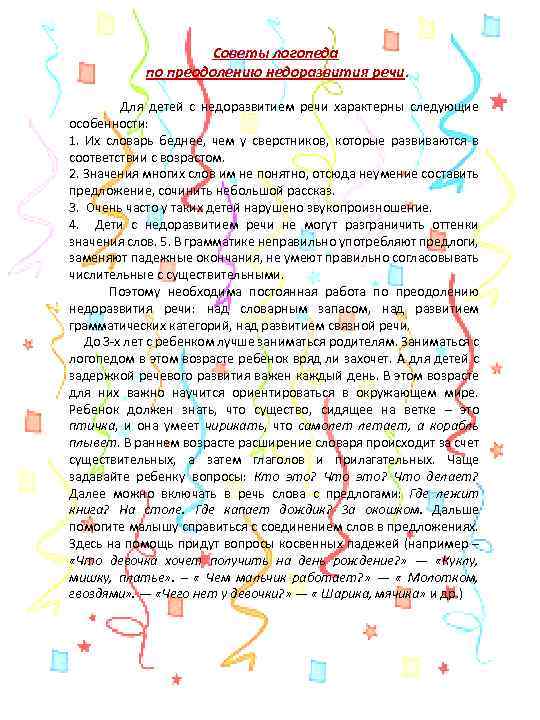 Советы логопеда
по преодолению недоразвития речи.
Для детей с недоразвитием речи характерны следующие
особенности:
1. Их словарь беднее, чем у сверстников, которые развиваются в
соответствии с возрастом.
2. Значения многих слов им не понятно, отсюда неумение составить
предложение, сочинить небольшой рассказ.
3. Очень часто у таких детей нарушено звукопроизношение.
4. Дети с недоразвитием речи не могут разграничить оттенки
значения слов. 5. В грамматике неправильно употребляют предлоги,
заменяют падежные окончания, не умеют правильно согласовывать
числительные с существительными.
Поэтому необходима постоянная работа по преодолению
недоразвития речи: над словарным запасом, над развитием
грамматических категорий, над развитием связной речи.
До 3-х лет с ребенком лучше заниматься родителям. Заниматься с
логопедом в этом возрасте ребенок вряд ли захочет. А для детей с
задержкой речевого развития важен каждый день. В этом возрасте
для них важно научится ориентироваться в окружающем мире.
Ребенок должен знать, что существо, сидящее на ветке – это
птичка, и она умеет чирикать, что самолет летает, а корабль
плывет. В раннем возрасте расширение словаря происходит за счет
существительных, а затем глаголов и прилагательных. Чаще
задавайте ребенку вопросы: Кто это? Что это? Что делает?
Далее можно включать в речь слова с предлогами: Где лежит
книга? На столе. Где капает дождик? За окошком. Дальше
помогите малышу справиться с соединением слов в предложениях.
Здесь на помощь придут вопросы косвенных падежей (например –
«Что девочка хочет получить на день рождение?» — «Куклу,
мишку, платье». – « Чем мальчик работает?» — « Молотком,
гвоздями». — «Чего нет у девочки?» — « Шарика, мячика» и др.)